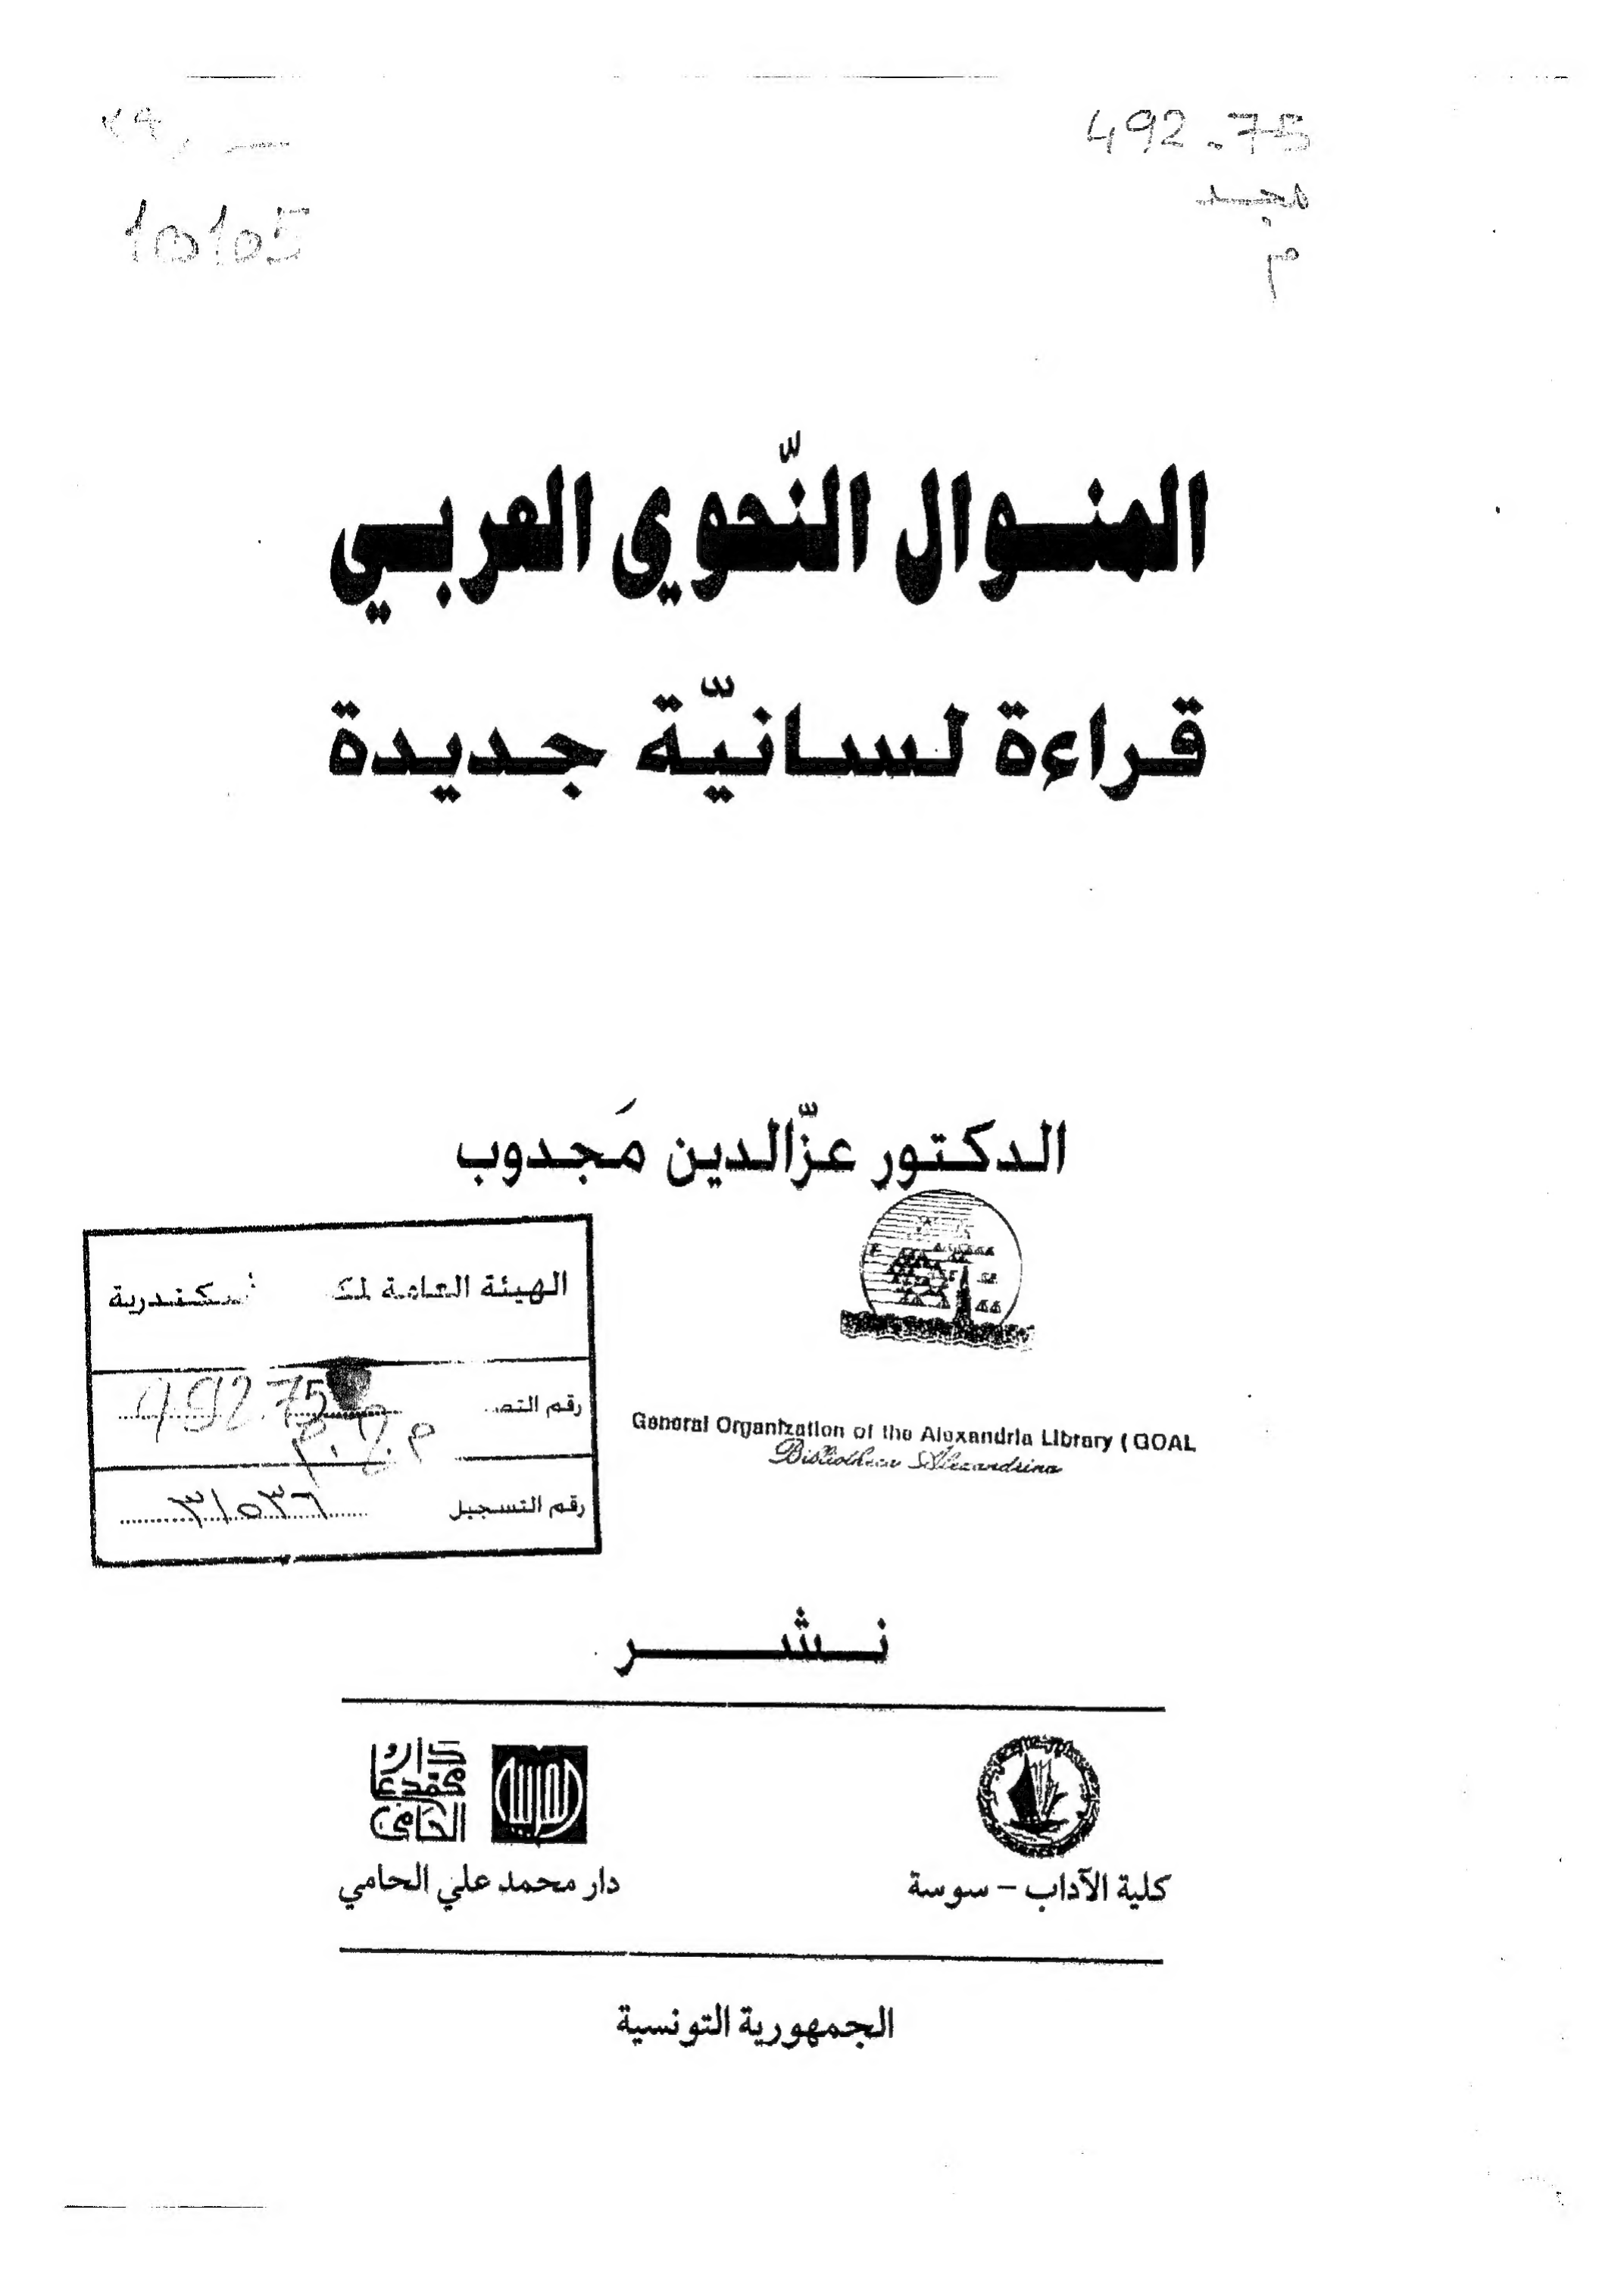 492.75
مجد
م
10105
المنوال النّحوي العربي
قراءة لسانيّة جديدة
الدكتور عزّالدين مَجدوب
الهيئة العامة لمك سكندرية
رقم التص
492.75
رقم التسجيل
٣١٥٣٦
General Organization of the Alexandria Library (GOAL
Bibliotheca Alexandrina
نشر
دار محمد علي الحامي
كلية الآداب - سوسة
دار محمد علي الحامي
الجمهورية التونسية